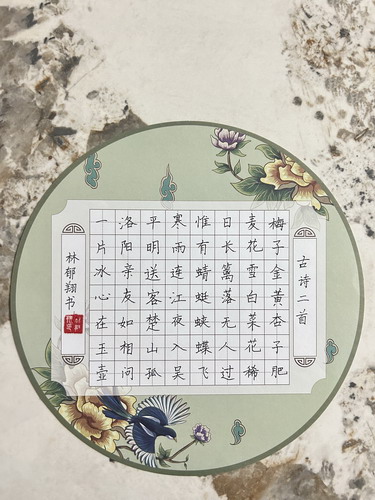 古诗二首
梅子金黄杏子肥
麦花雪白菜花稀
日长篱落无人过
惟有蜻蜓蛱蝶飞
寒雨连江夜入吴
平明送客楚山孤
洛阳亲友如相问
一片冰心在玉壶
林郁翔书